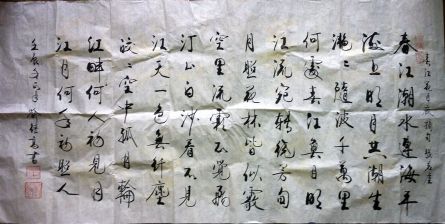 春江花月夜摘句 張若虛
春江潮水連海平
海上明月共潮生
灧〻隨波千萬里
何處春江無月明
江流宛轉繞芳甸
月照花林皆似霰
空里流霜不覺飛
汀上白沙看不見
江天一色無纖塵
皎〻空中孤月輪
江畔何人初見月
江月何年初照人
壬辰 書